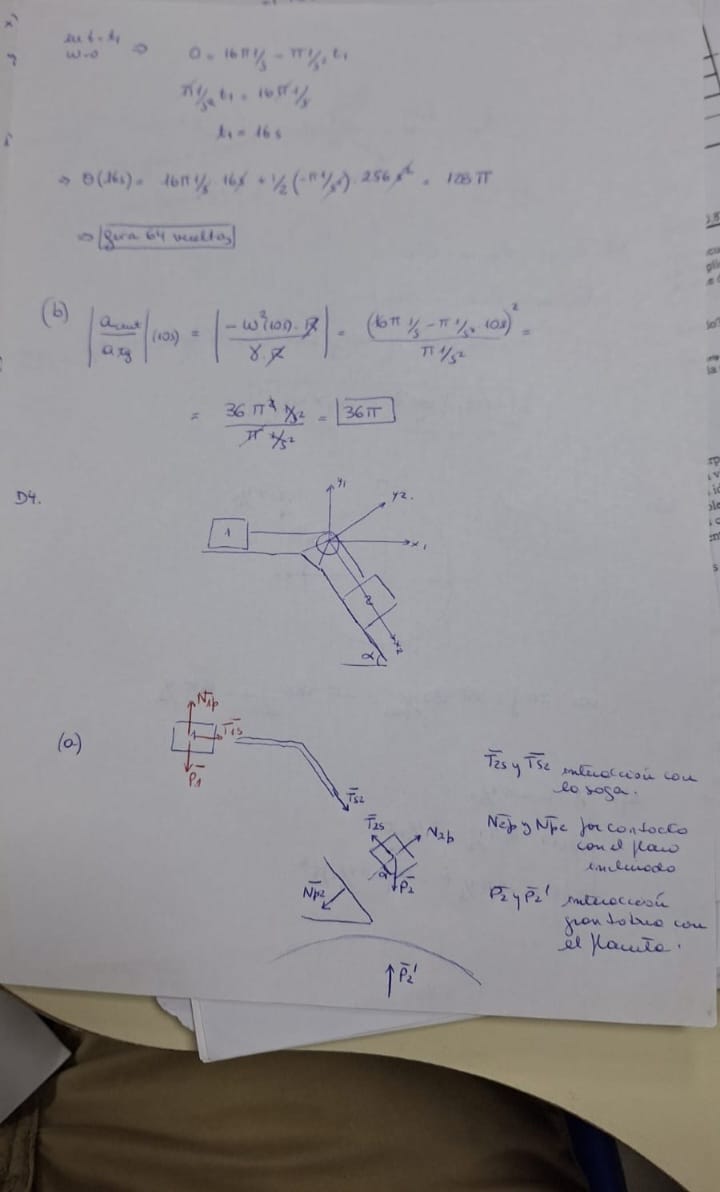 en t = t₁
ω=0 ⇒ 0 = 16π 1/s − π 1/s² t₁
π 1/s² t₁ = 16π 1/s
t₁ = 16 s
⇒ θ(16s) = 16π 1/s · 16s + 1/2 (−π 1/s²) · 256 s² = 128 π
⇒ gira 64 vueltas
(b) |a cent / a tg| (10s) = |−ω²(10s) · R / γ · R| = (16π 1/s − π 1/s² · 10s)² / π 1/s² =
= 36 π² 1/s² / π 1/s² = 36π
D4.
y₁
y₂
1
x₁
2
x₂
α
(a)
N̄1p
1
T̄1s
P̄1
T̄s2
T̄2s
N̄2p
α
P̄2
N̄p2
P̄2'
T̄2s y T̄s2 interacción con
la soga.
N̄2p y N̄p2 por contacto
con el plano
inclinado
P̄2 y P̄2' interacción
gravitatoria con
el planeta.